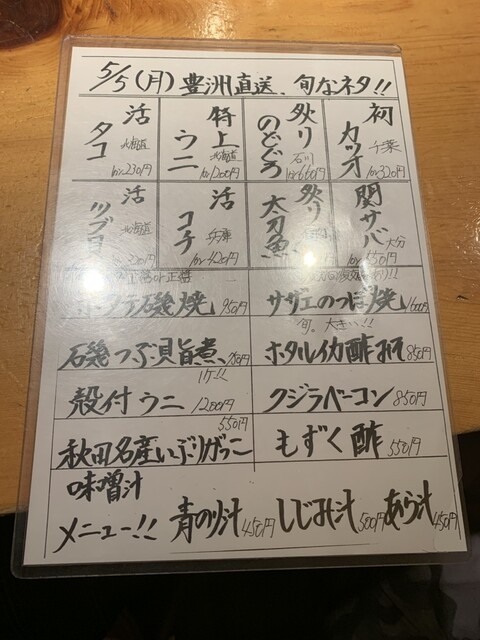 5/5(月)豊洲直送、旬なネタ!!
初カツオ 千葉 320円
炙りのどぐろ 石川 660円
特上ウニ 北海道 1200円
活タコ 北海道 230円
関サバ 大分
炙り太刀魚
活コチ 兵庫 420円
活ツブ貝 北海道
ホタテ磯焼 950円
サザエのつぼ焼
旬。大きい!!
磯つぶ貝旨煮
ホタルイカ酢みそ 850円
1ケ!!
殻付ウニ 1200円
クジラベーコン 850円
550円
秋田名産いぶりがっこ
もずく酢 550円
味噌汁
メニュー!! 青のり汁 450円 しじみ汁 500円 あら汁 450円